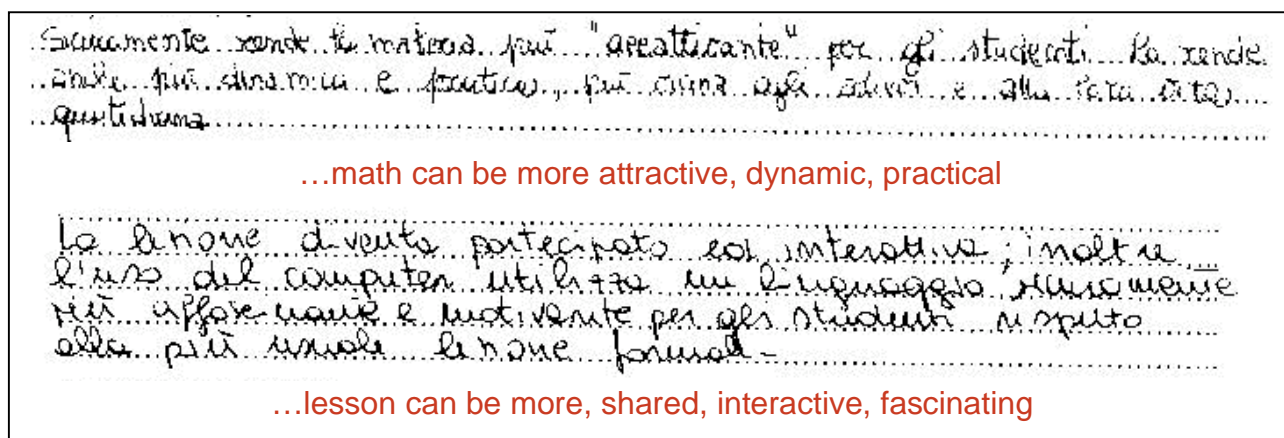 Sicuramente rende la materia più "appetitante" per gli studenti. La rende
anche più dinamica e pratica, più vicina agli allievi e alla loro vita
quotidiana
…math can be more attractive, dynamic, practical
La lezione diventa partecipata ed interattiva; inoltre
l'uso del computer utilizza un linguaggio sicuramente
più affascinante e motivante per gli studenti rispetto
alla più usuale lezione formale.
…lesson can be more, shared, interactive, fascinating